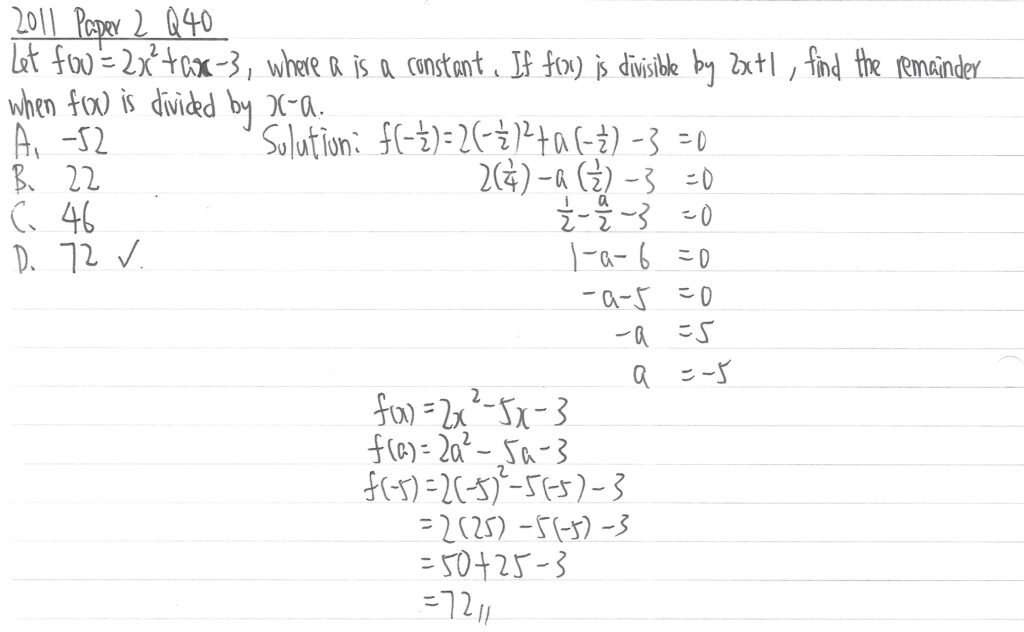 2011 Paper 2 Q40
Let f(x) = 2x²+ax-3, where a is a constant. If f(x) is divisible by 2x+1, find the remainder
when f(x) is divided by x-a.
A. -52
Solution: f(-1/2)=2(-1/2)²+a(-1/2)-3 =0
B. 22
2(1/4)-a(1/2)-3 =0
C. 46
1/2-a/2-3 =0
D. 72 ✓.
1-a-6 =0
-a-5 =0
-a =5
a =-5
f(x)=2x²-5x-3
f(a)=2a²-5a-3
f(-5)=2(-5)²-5(-5)-3
=2(25)-5(-5)-3
=50+25-3
=72//